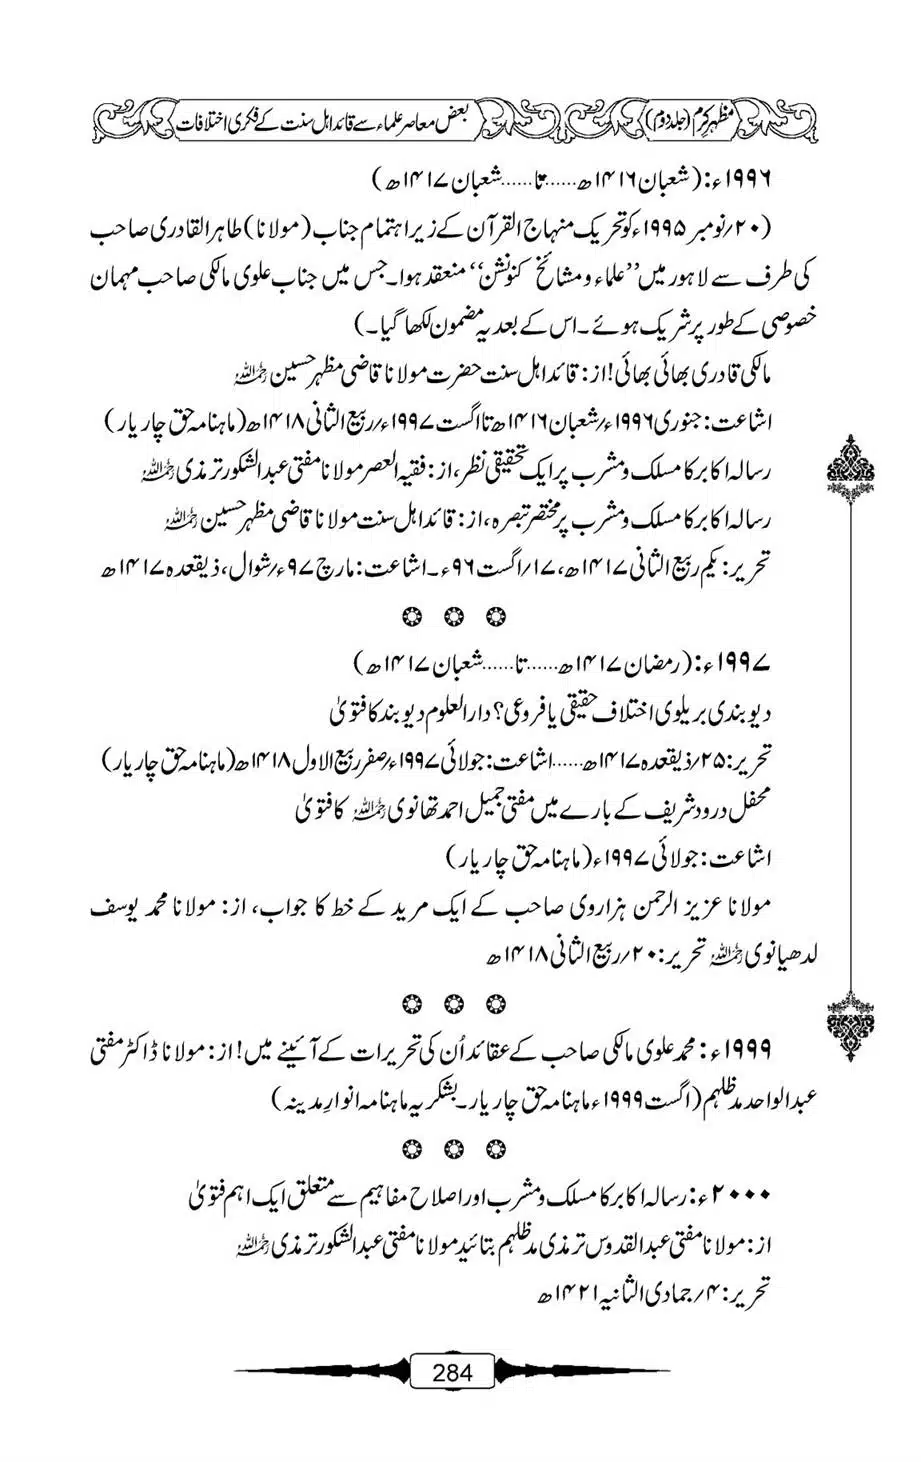 مظہرِ کرم (جلد دوم)
بعض معاصر علماء سے قائد اہل سنت کے فکری اختلافات
۱۹۹۶ء: (شعبان ۱۴۱۶ھ......تا......شعبان ۱۴۱۷ھ)
(۲۰/نومبر ۱۹۹۵ء کو تحریک منہاج القرآن کے زیر اہتمام جناب (مولانا) طاہر القادری صاحب
کی طرف سے لاہور میں ’’علماء و مشائخ کنونشن‘‘ منعقد ہوا۔ جس میں جناب علوی مالکی صاحب مہمان
خصوصی کے طور پر شریک ہوئے۔ اس کے بعد یہ مضمون لکھا گیا۔)
مالکی قادری بھائی بھائی! از: قائد اہل سنت حضرت مولانا قاضی مظہر حسین رحمہ اللہ
اشاعت: جنوری ۱۹۹۶ء/شعبان ۱۴۱۶ھ تا اگست ۱۹۹۷ء/ربیع الثانی ۱۴۱۸ھ (ماہنامہ حق چار یار)
رسالہ اکابر کا مسلک و مشرب پر ایک تحقیقی نظر، از: فقیہ العصر مولانا مفتی عبدالشکور ترمذی رحمہ اللہ
رسالہ اکابر کا مسلک و مشرب پر مختصر تبصرہ، از: قائد اہل سنت مولانا قاضی مظہر حسین رحمہ اللہ
تحریر: یکم ربیع الثانی ۱۴۱۷ھ، ۱۷/اگست ۹۶ء۔ اشاعت: مارچ ۹۷ء/شوال، ذیقعدہ ۱۴۱۷ھ
۱۹۹۷ء: (رمضان ۱۴۱۷ھ......تا......شعبان ۱۴۱۷ھ)
دیوبندی بریلوی اختلاف حقیقی یا فروعی؟ دارالعلوم دیوبند کا فتویٰ
تحریر: ۲۵/ذیقعدہ ۱۴۱۷ھ......اشاعت: جولائی ۱۹۹۷ء/صفر ربیع الاول ۱۴۱۸ھ (ماہنامہ حق چار یار)
محفل درود شریف کے بارے میں مفتی جمیل احمد تھانوی رحمہ اللہ کا فتویٰ
اشاعت: جولائی ۱۹۹۷ء (ماہنامہ حق چار یار)
مولانا عزیز الرحمن ہزاروی صاحب کے ایک مرید کے خط کا جواب، از: مولانا محمد یوسف
لدھیانوی رحمہ اللہ تحریر: ۲۰/ربیع الثانی ۱۴۱۸ھ
۱۹۹۹ء: محمد علوی مالکی صاحب کے عقائد اُن کی تحریرات کے آئینے میں! از: مولانا ڈاکٹر مفتی
عبدالواحد مدظلہم (اگست ۱۹۹۹ء ماہنامہ حق چار یار۔ بشکریہ ماہنامہ انوارِ مدینہ)
۲۰۰۰ء: رسالہ اکابر کا مسلک و مشرب اور اصلاح مفاہیم سے متعلق ایک اہم فتویٰ
از: مولانا مفتی عبدالقدوس ترمذی مدظلہم بتائید مولانا مفتی عبدالشکور ترمذی رحمہ اللہ
تحریر: ۴/جمادی الثانیہ ۱۴۲۱ھ
284